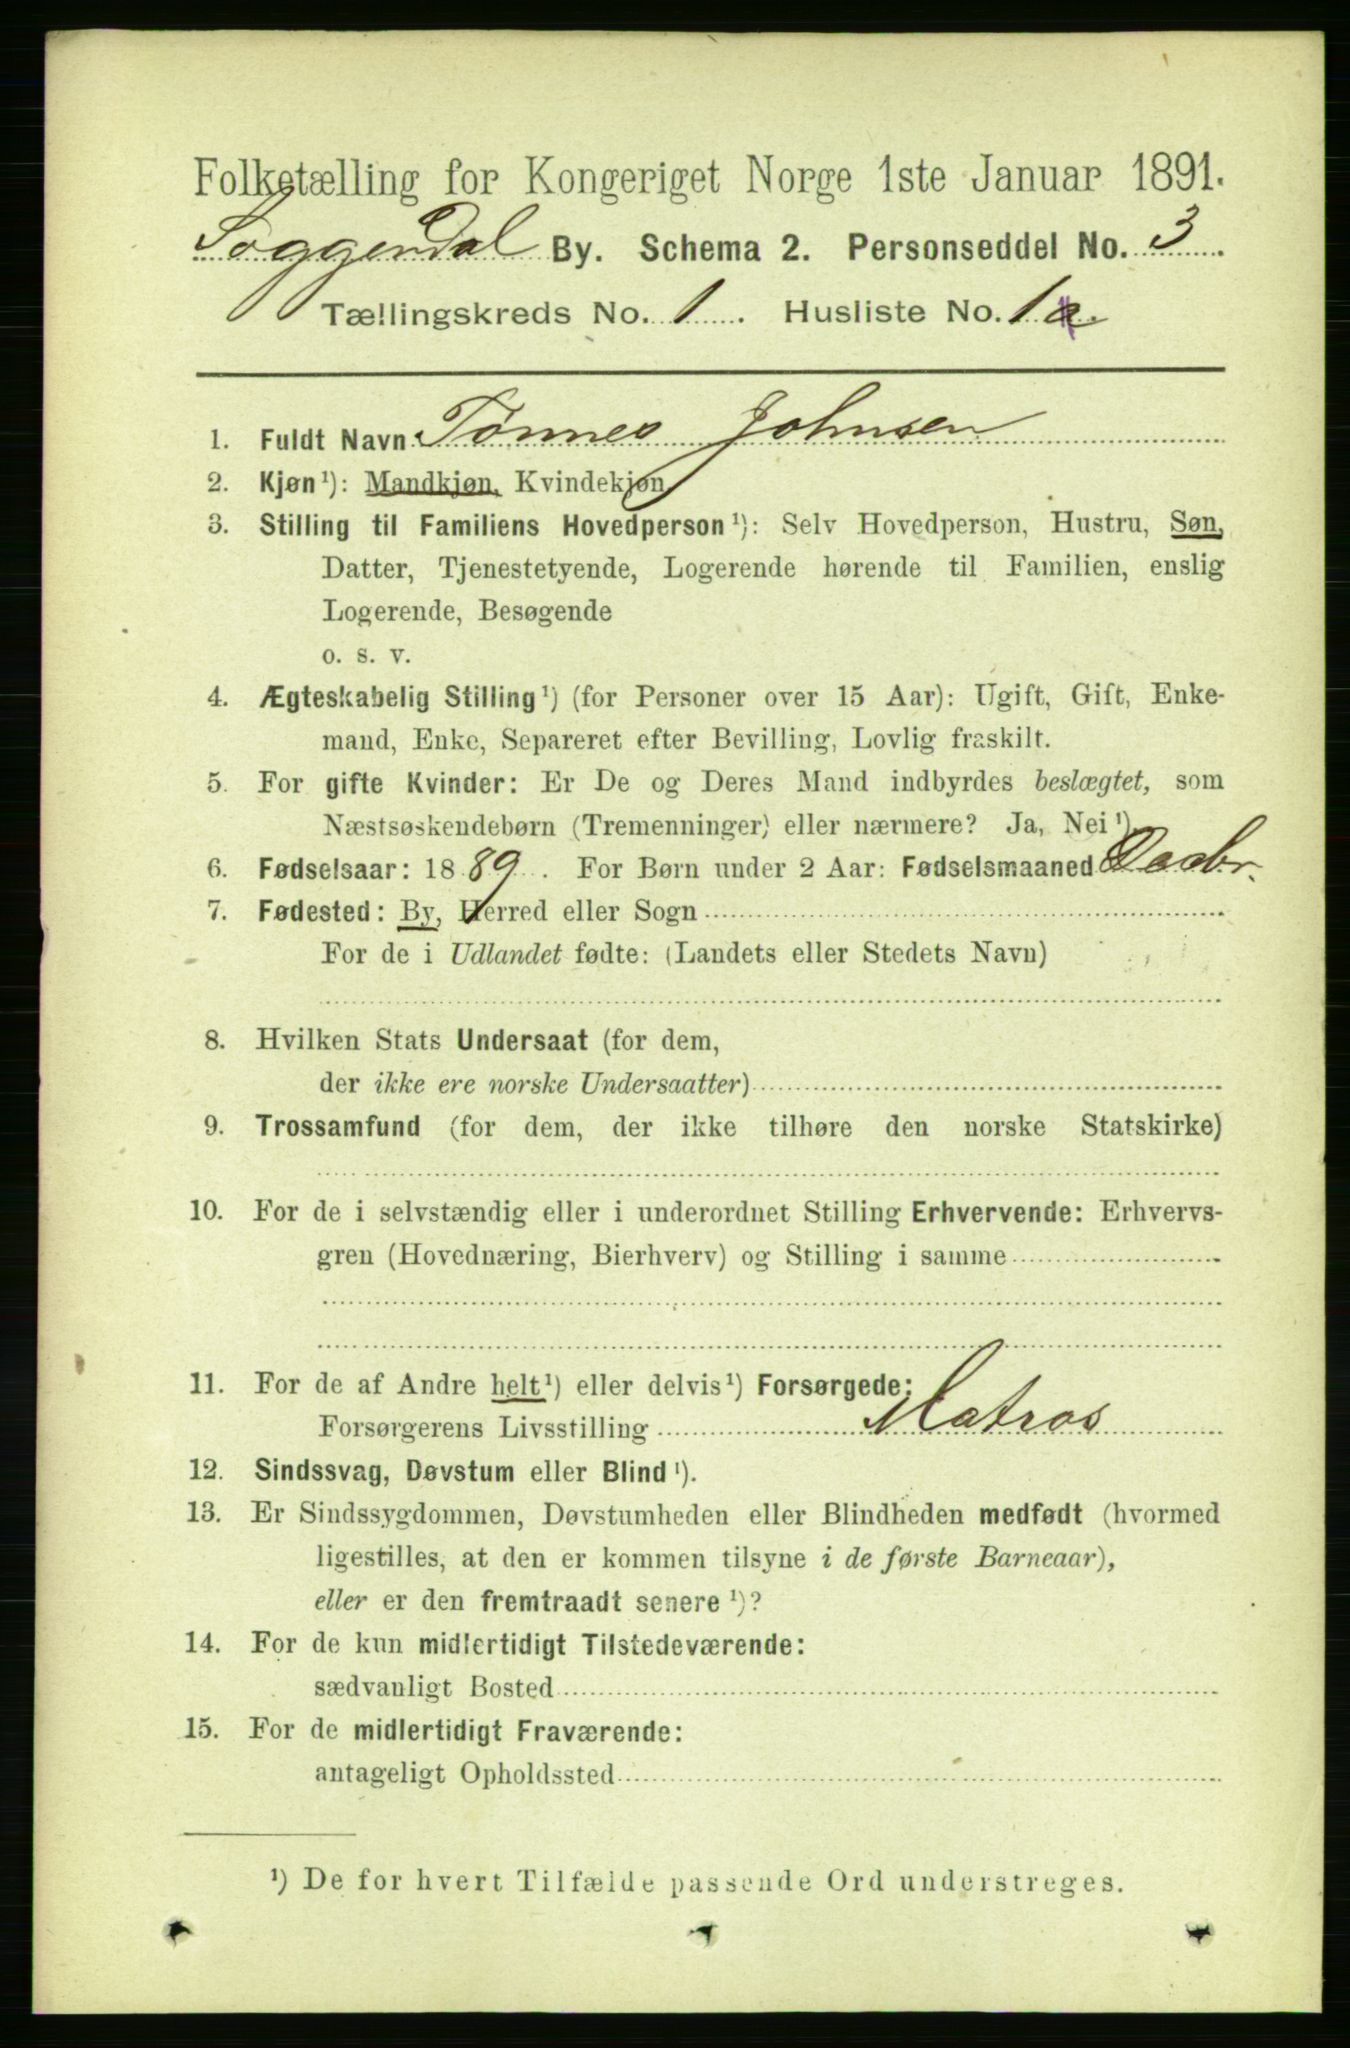 Folketælling for Kongeriget Norge 1ste Januar 1891.
Soggendal By. Schema 2. Personseddel No. 3
Tællingskreds No. 1. Husliste No. 1a.
1. Fuldt Navn Tønnes Johnsen
2. Kjøn¹): Mandkjøn, Kvindekjøn
3. Stilling til Familiens Hovedperson¹): Selv Hovedperson, Hustru, Søn,
Datter, Tjenestetyende, Logerende hørende til Familien, enslig
Logerende, Besøgende
o. s. v.
4. Ægteskabelig Stilling¹) (for Personer over 15 Aar): Ugift, Gift, Enke-
mand, Enke, Separeret efter Bevilling, Lovlig fraskilt.
5. For gifte Kvinder: Er De og Deres Mand indbyrdes beslægtet, som
Næstsøskendebørn (Tremenninger) eller nærmere? Ja, Nei¹)
6. Fødselsaar: 1889. For Børn under 2 Aar: Fødselsmaaned Decbr.
7. Fødested: By, Herred eller Sogn
For de i Udlandet fødte: (Landets eller Stedets Navn)
8. Hvilken Stats Undersaat (for dem,
der ikke ere norske Undersaatter)
9. Trossamfund (for dem, der ikke tilhøre den norske Statskirke)
10. For de i selvstændig eller i underordnet Stilling Erhvervende: Erhvervs-
gren (Hovednæring, Bierhverv) og Stilling i samme
11. For de af Andre helt¹) eller delvis¹) Forsørgede:
Forsørgerens Livsstilling Matros
12. Sindssvag, Døvstum eller Blind¹).
13. Er Sindssygdommen, Døvstumheden eller Blindheden medfødt (hvormed
ligestilles, at den er kommen tilsyne i de første Barneaar),
eller er den fremtraadt senere¹)?
14. For de kun midlertidigt Tilstedeværende:
sædvanligt Bosted
15. For de midlertidigt Fraværende:
antageligt Opholdssted
¹) De for hvert Tilfælde passende Ord understreges.